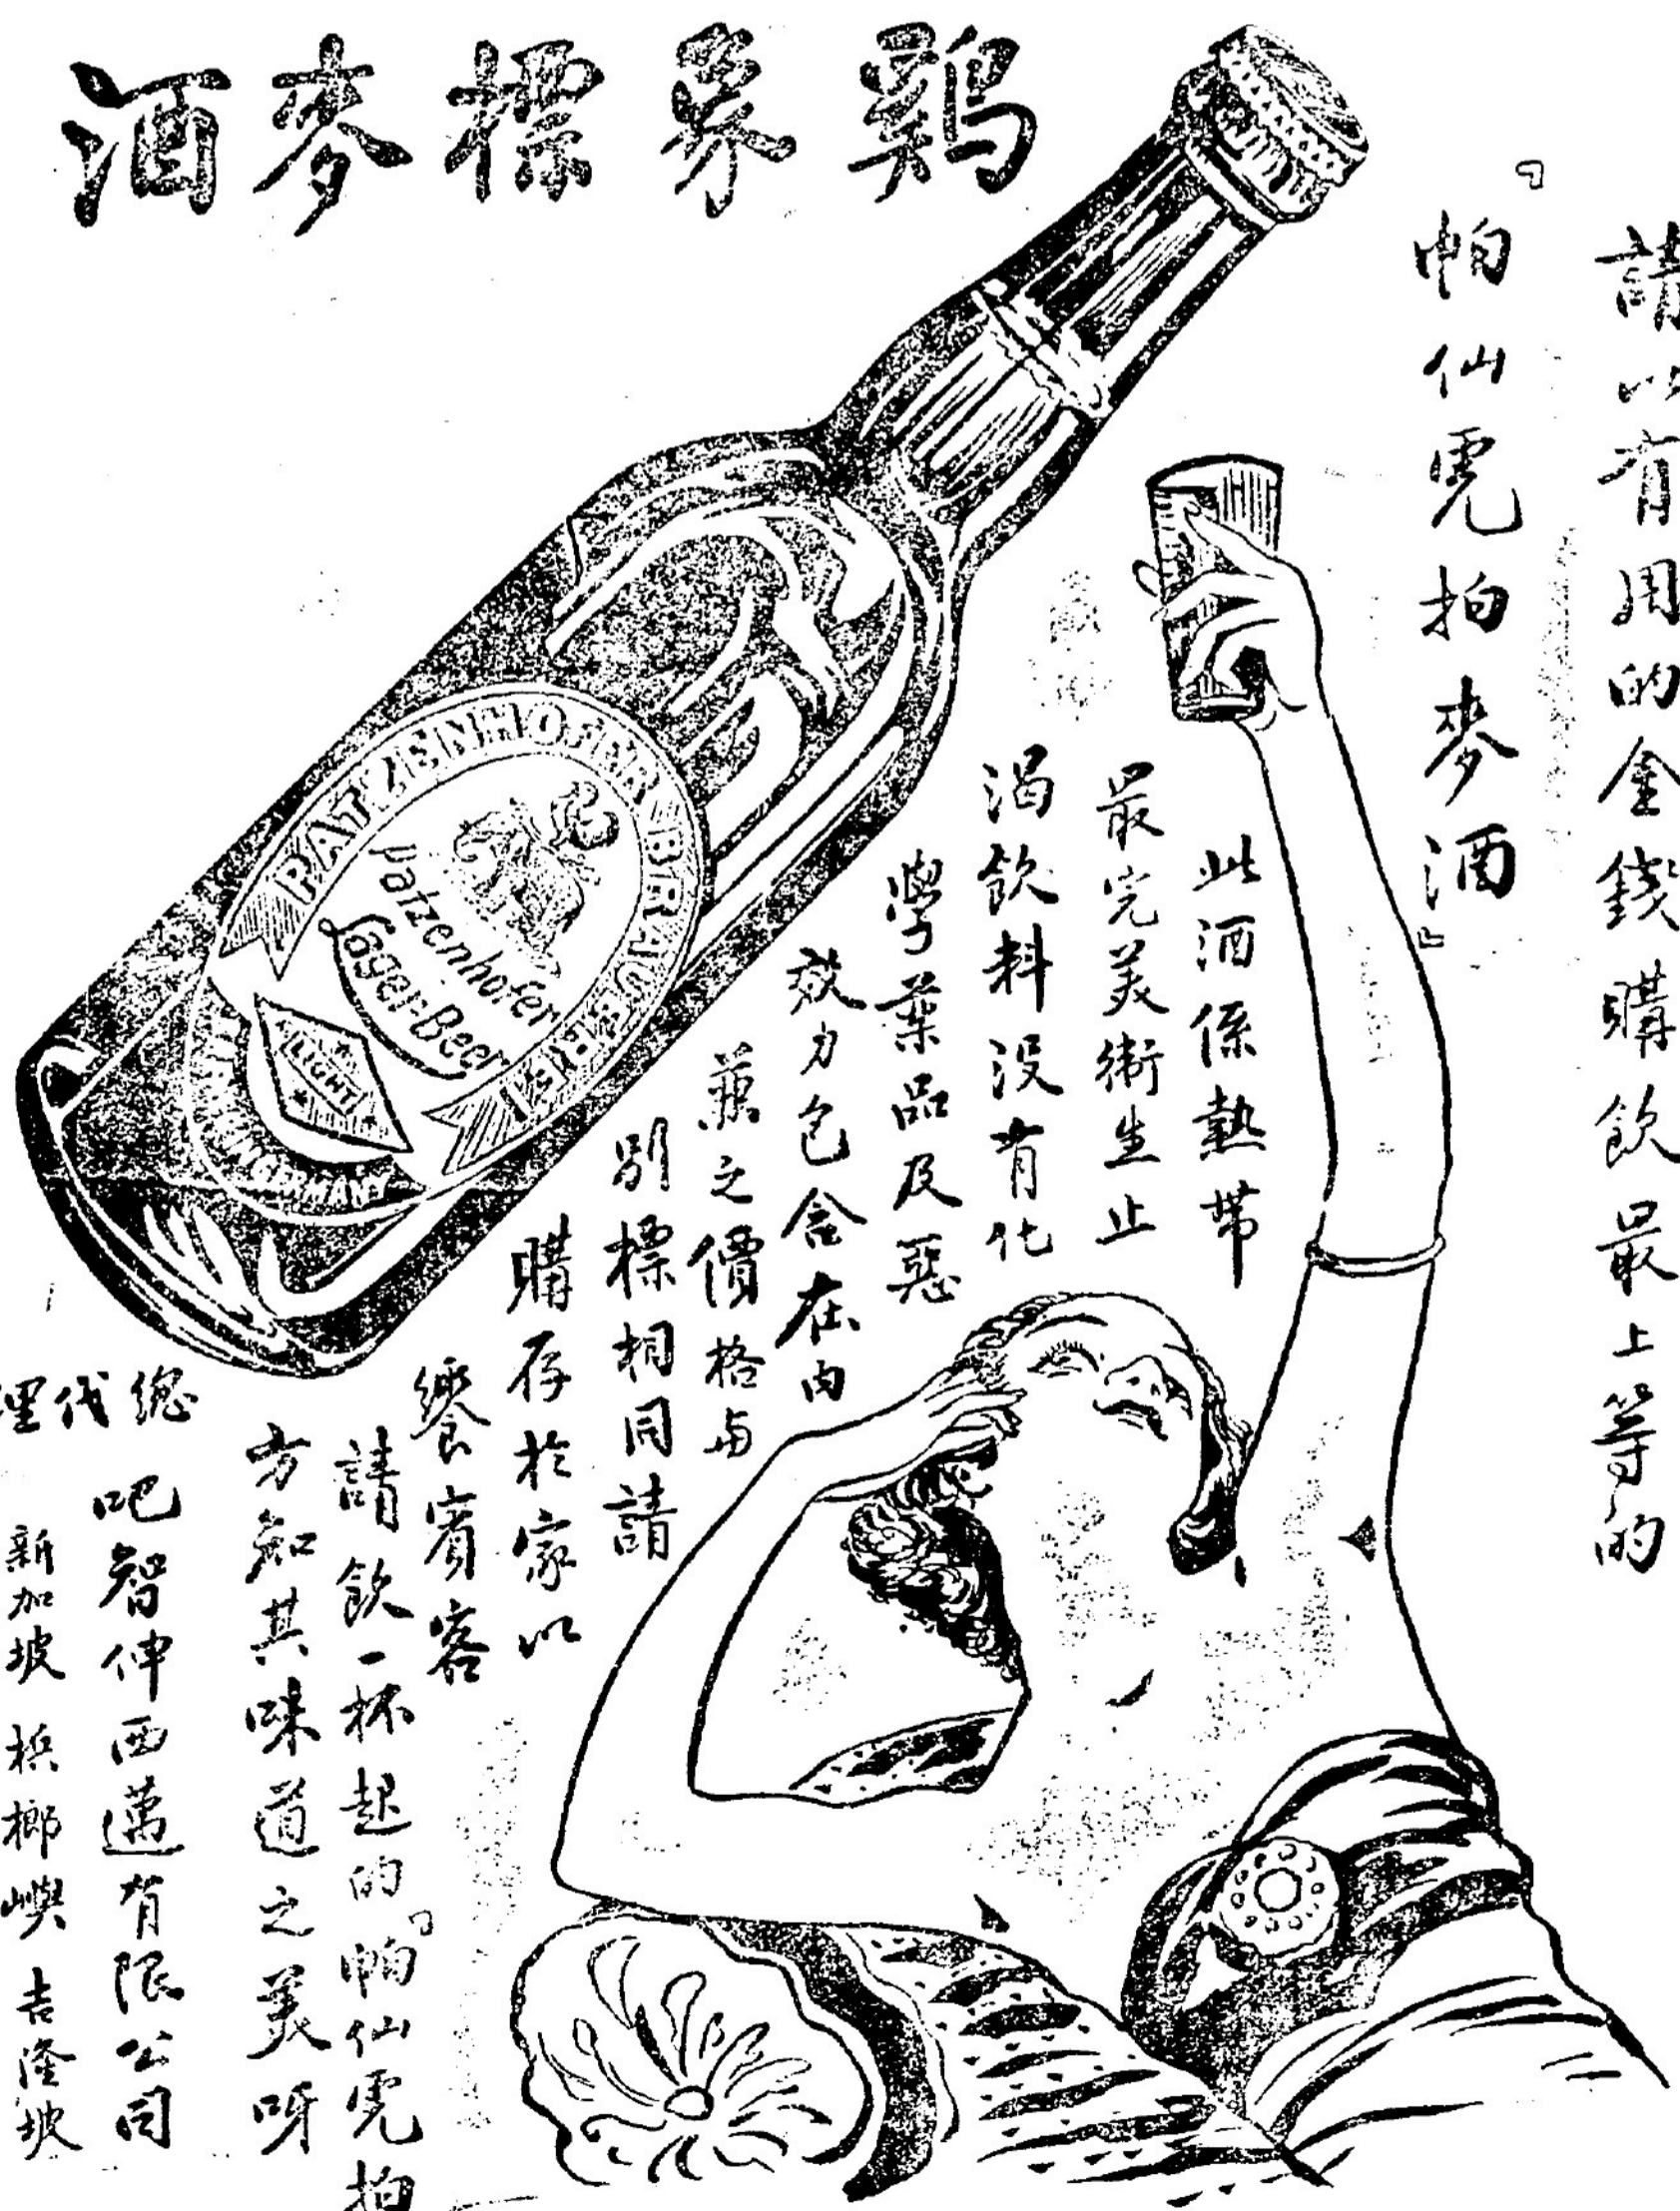 鷄象標麥酒
請以有用的金錢購飲最上等的
『帕仙虎拍麥酒』
此酒係熱帶
最完美衛生止
渴飲料没有化
學薬品及惡
效力包含在内
兼之價格与
別標相同請
購存於家以
饗賓客
請飲一杯起的『帕仙虎拍
方知其味道之美呀
總代理
吧智伸西邁有限公司
新加坡 梹榔嶼 吉隆坡
PATZENHOFER BRAUEREI
Patzenhofer
Lager-Beer
LIGHT
GERMANY